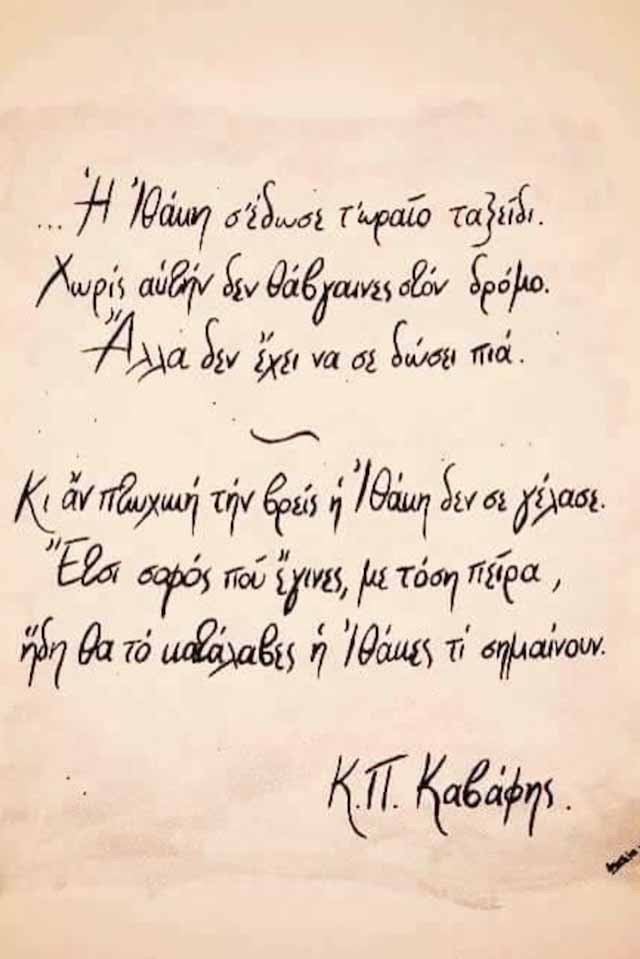 ... Ἡ Ἰθάκη σ' έδωσε τ' ωραῖο ταξείδι.
Χωρίς αὐτήν δεν θάβγαινες στόν δρόμο.
Ἄλλα δεν ἔχει να σε δώσει πιά.
Κι ἄν πτωχική τήν βρεῖς ἡ Ἰθάκη δεν σε γέλασε.
Ἔτσι σοφός πού ἔγινες, με τόση πεῖρα,
ἤδη θα τό κατάλαβες ἡ Ἰθάκες τί σημαίνουν.
Κ.Π. Καβάφης.